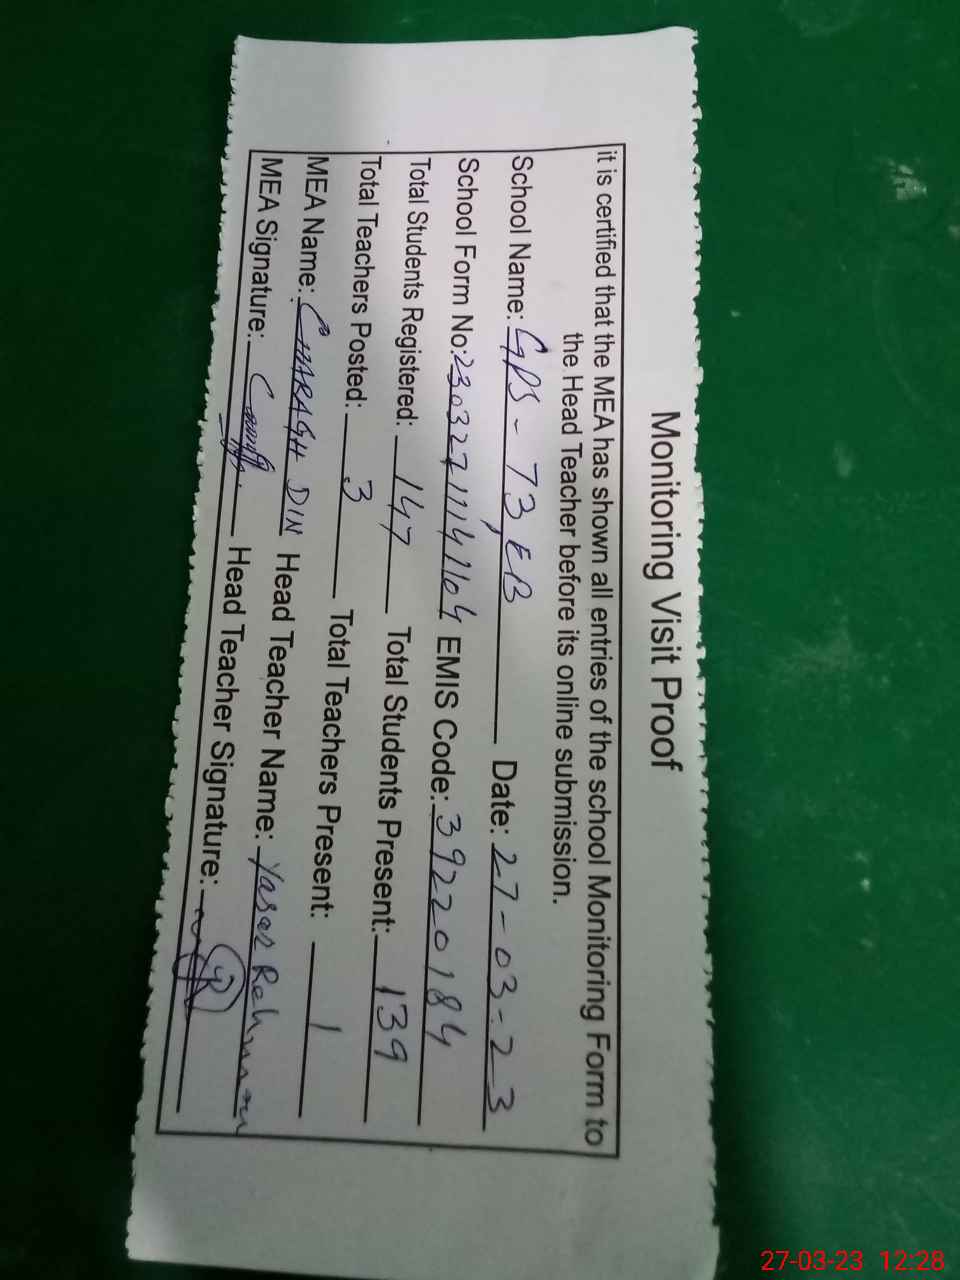 Monitoring Visit Proof
it is certified that the MEA has shown all entries of the school Monitoring Form to
the Head Teacher before its online submission.
School Name: GPS - 73, EB Date: 27-03-23
School Form No: 23032711141104 EMIS Code: 39220184
Total Students Registered: 147 Total Students Present: 139
Total Teachers Posted: 3 Total Teachers Present: 1
MEA Name: CHARAGH DIN Head Teacher Name: Yasar Rehman
MEA Signature: Head Teacher Signature:
27-03-23 12:28